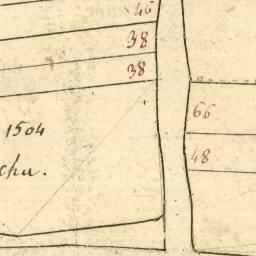 46
38
38
66
1504
48
chu.